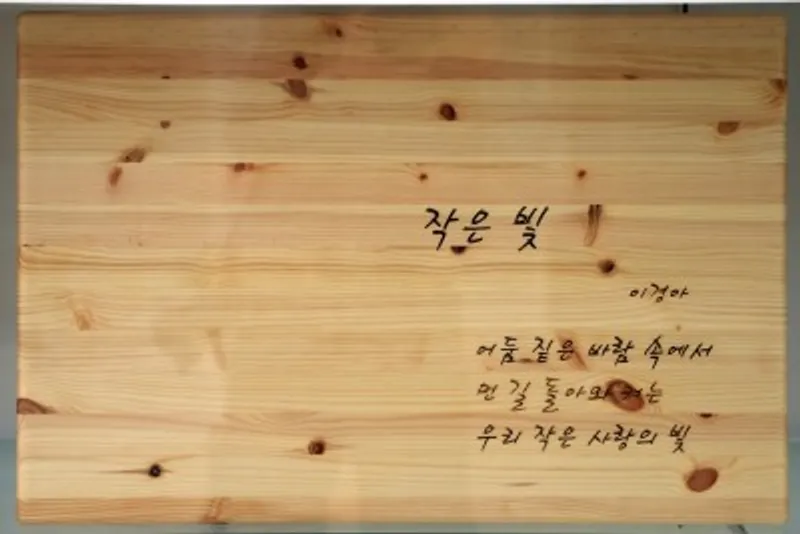 작은 빛
이경아
어둠 짙은 바람 속에서
먼 길 돌아와 켜는
우리 작은 사랑의 빛